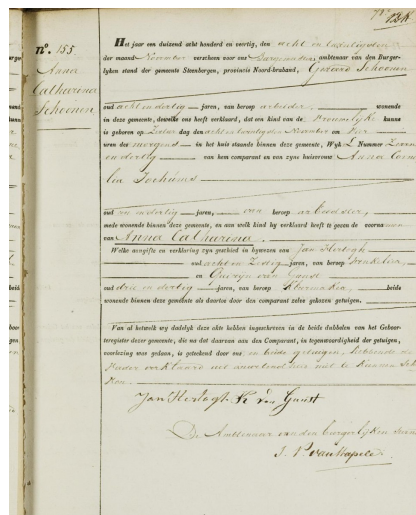 nº. 155
Anna
Catharina
Schoonen
Het jaar een duizend acht honderd en veertig, den acht en twintigsten
der maand November verscheen voor ons Burgemeester ambtenaar van den Burger-
lyken stand der gemeente Steenbergen, provincie Noord-braband, Schoonen
oud acht en dertig jaren, van beroep arbeider, wonende
in deze gemeente, dewelke ons heeft verklaard, dat een kind van de Vrouwelyke kunne
is geboren op Zater dag den acht en twintigsten November om Vier
uren des morgens in het huis staande binnen deze gemeente, Wyk L Nummer Zeven
en dertig van hem comparant en van zyne huisvrouw Anna Corne
lia Jochems
oud en dertig jaren, van beroep arbeidster,
mede wonende binnen deze gemeente, en aan welk kind hy verklaard heeft te geven de voornamen
van Anna Catharina.
Welke aangifte en verklaring zyn geschied in bywezen van Jan Hertogh
oud acht en Zestig jaren, van beroep Winkelier,
en Quiryn van Gaust
oud drie en dertig jaren, van beroep Kleermaker, beide
wonende binnen deze gemeente als daartoe door den comparant zelve gekozen getuigen.
Van al hetwelk wy dadelyk deze akte hebben ingeschreven in de beide dubbelen van het Geboor-
teregister dezer gemeente, die na dat daarvan aan den Comparant, in tegenwoordigheid der getuigen,
voorlezing was gedaan, is geteekend door ons en beide getuigen, hebbende de
Vader verklaard uit onwetendheid niet te kunnen
Jan Hertogh van Gaust
De Ambtenaar van den burgerlyken